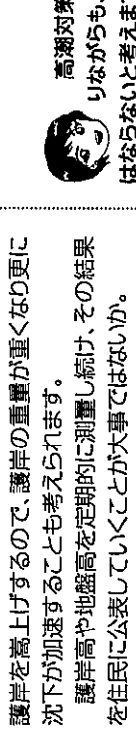 護岸を嵩上げするので、護岸の重量が重くなり更に
沈下が加速することも考えられます。
護岸高や地盤高を定期的に測量し続け、その結果
を住民に公表していくことが大事ではないか。
高潮対策
りながらも、
はならないと考えま